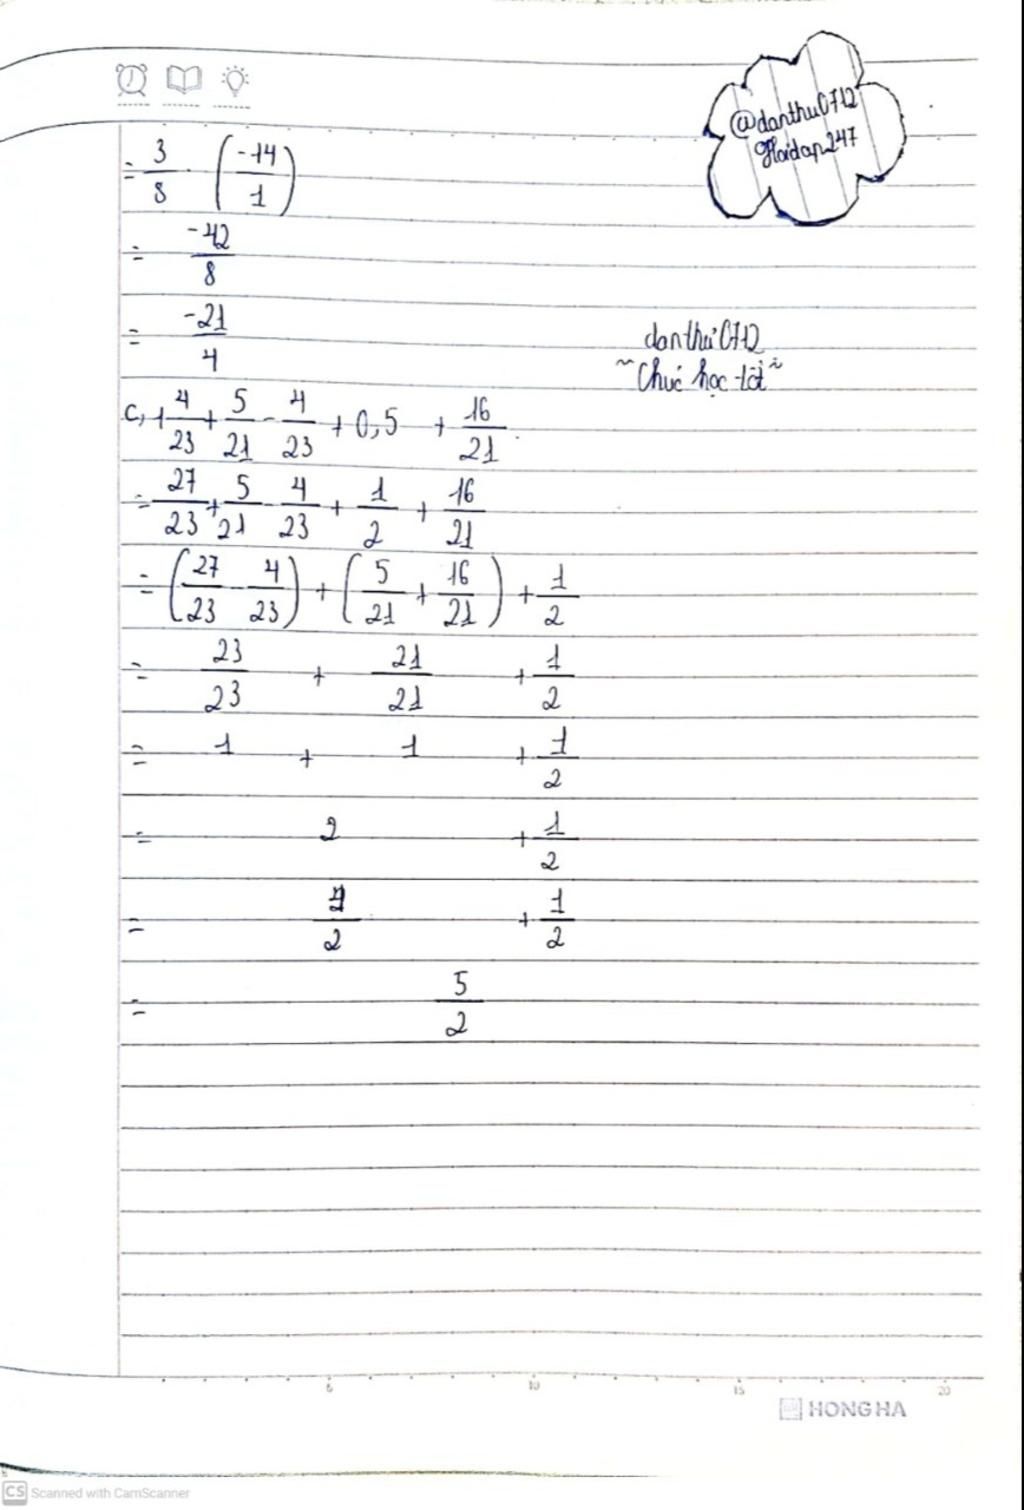 @danthu0712
Hoidap247
= 3/8 · (-14/1)
= -42/8
= -21/4
danthu0712
~ Chúc học tốt ~
c, 1 4/23 + 5/21 - 4/23 + 0,5 + 16/21
= 27/23 + 5/21 - 4/23 + 1/2 + 16/21
= (27/23 - 4/23) + (5/21 + 16/21) + 1/2
= 23/23 + 21/21 + 1/2
= 1 + 1 + 1/2
= 2 + 1/2
= 4/2 + 1/2
= 5/2
5 10 15 20
HONG HA
CS Scanned with CamScanner